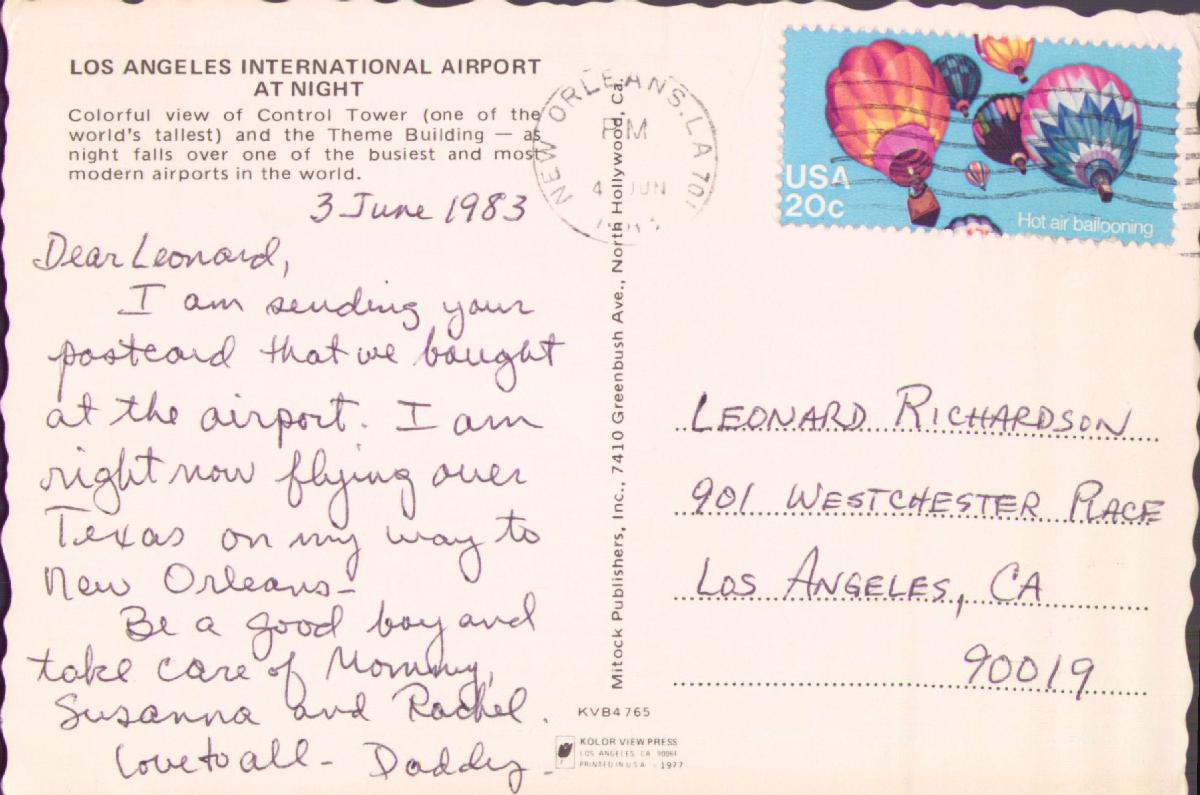 LOS ANGELES INTERNATIONAL AIRPORT
AT NIGHT
Colorful view of Control Tower (one of the
world's tallest) and the Theme Building — as
night falls over one of the busiest and most
modern airports in the world.
3 June 1983
Dear Leonard,
I am sending your
postcard that we bought
at the airport. I am
right now flying over
Texas on my way to
New Orleans-
Be a good boy and
take care of Mommy,
Susanna and Rachel.
Love to all - Daddy -
NEW ORLEANS. LA 701
PM
4 JUN
Mitock Publishers, Inc., 7410 Greenbush Ave., North Hollywood, Ca.
KVB4765
KOLOR VIEW PRESS
LOS ANGELES, CA
PRINTED IN U.S.A. - 1977
USA
20c
Hot air ballooning
LEONARD RICHARDSON
901 WESTCHESTER PLACE
LOS ANGELES, CA
90019